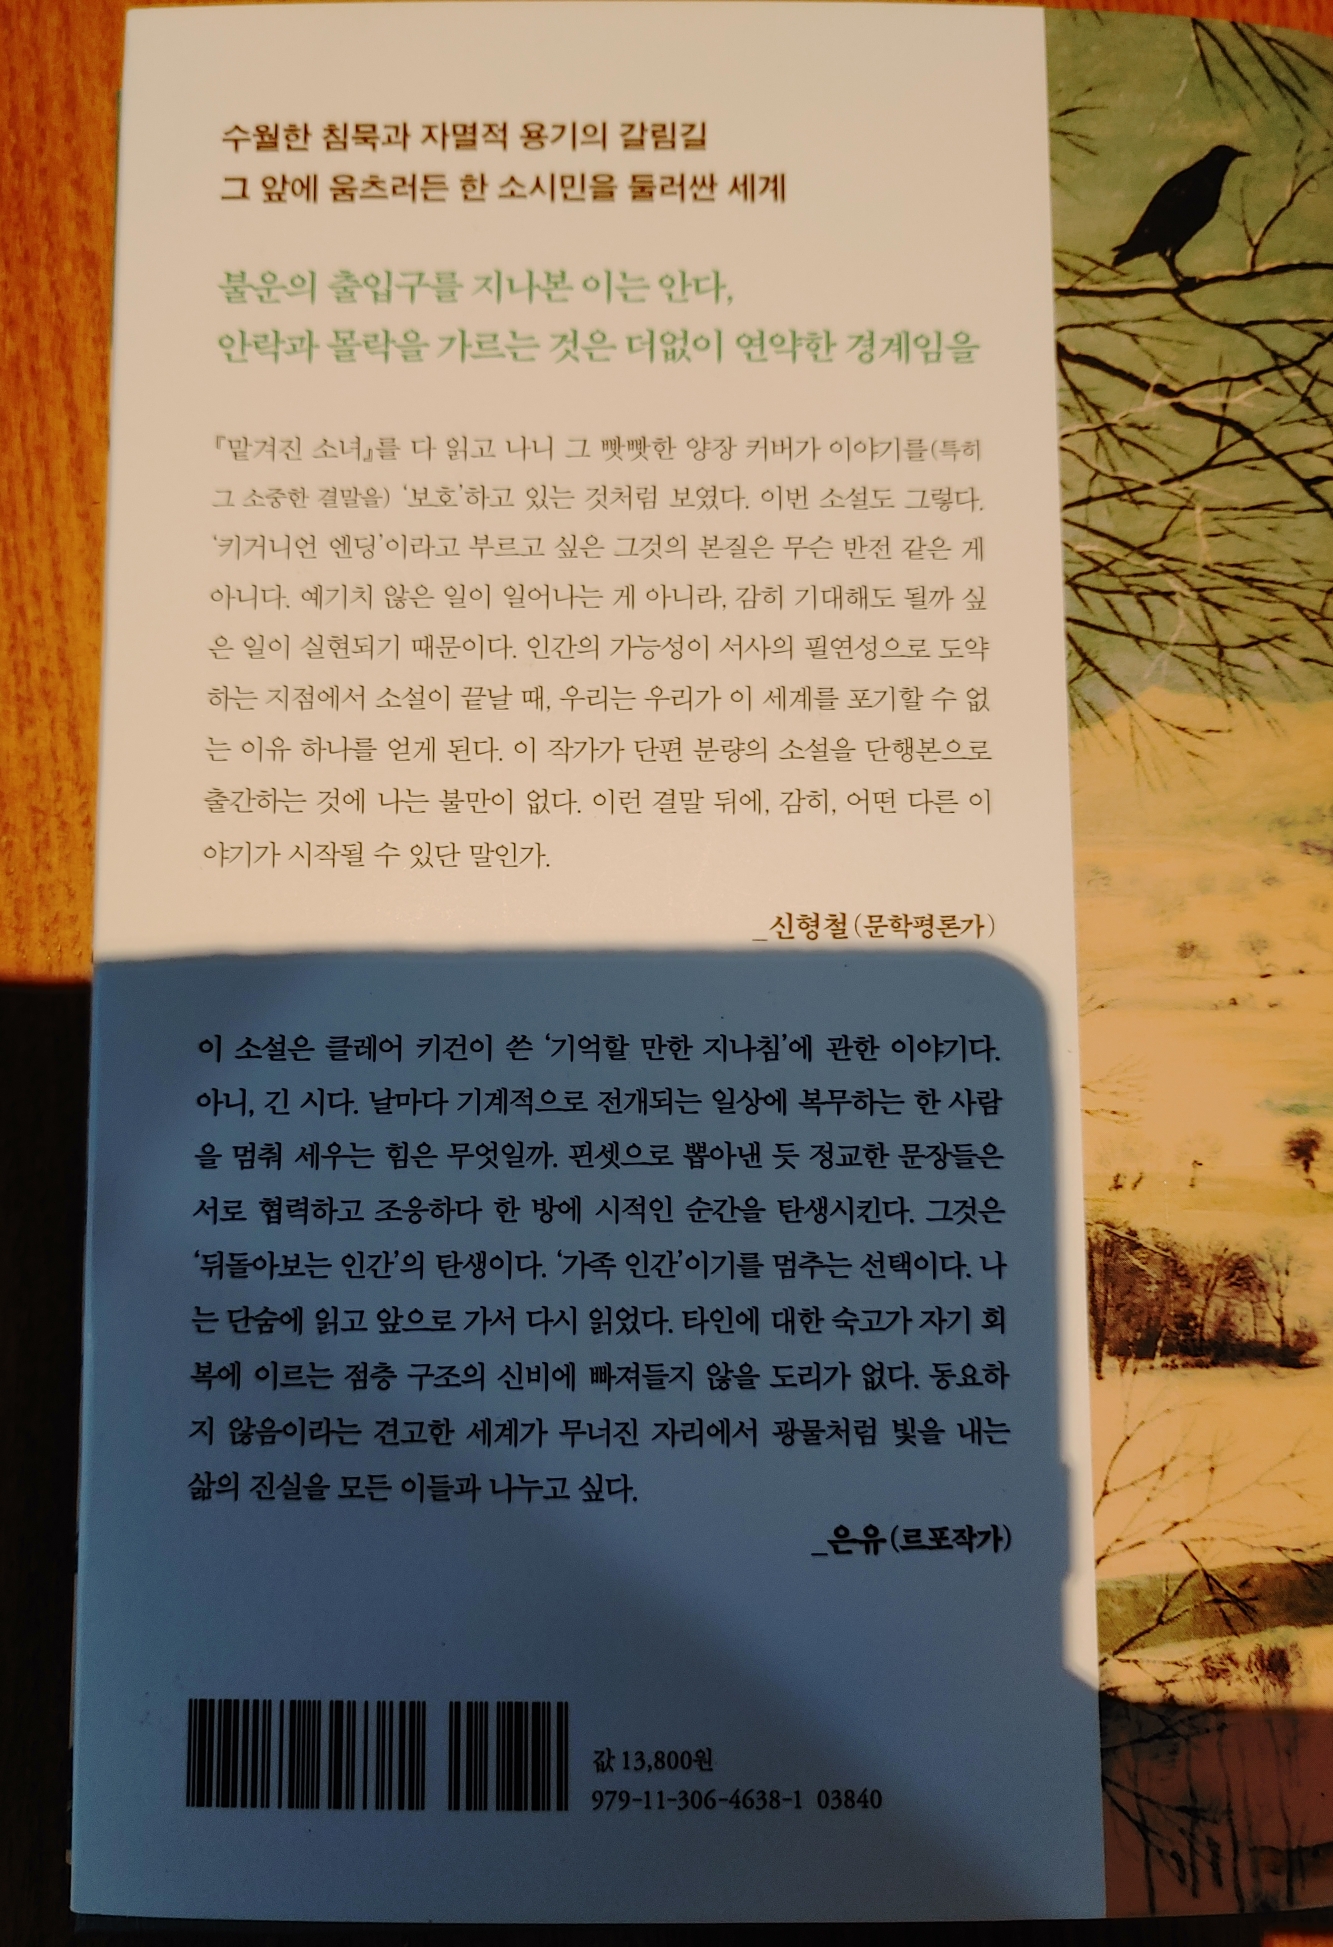 수월한 침묵과 자멸적 용기의 갈림길
그 앞에 움츠러든 한 소시민을 둘러싼 세계
불운의 출입구를 지나본 이는 안다,
안락과 몰락을 가르는 것은 더없이 연약한 경계임을
『맡겨진 소녀』를 다 읽고 나니 그 빳빳한 양장 커버가 이야기를(특히
그 소중한 결말을) ‘보호’하고 있는 것처럼 보였다. 이번 소설도 그렇다.
‘키거니언 엔딩’이라고 부르고 싶은 그것의 본질은 무슨 반전 같은 게
아니다. 예기치 않은 일이 일어나는 게 아니라, 감히 기대해도 될까 싶
은 일이 실현되기 때문이다. 인간의 가능성이 서사의 필연성으로 도약
하는 지점에서 소설이 끝날 때, 우리는 우리가 이 세계를 포기할 수 없
는 이유 하나를 얻게 된다. 이 작가가 단편 분량의 소설을 단행본으로
출간하는 것에 나는 불만이 없다. 이런 결말 뒤에, 감히, 어떤 다른 이
야기가 시작될 수 있단 말인가.
_신형철(문학평론가)
이 소설은 클레어 키건이 쓴 ‘기억할 만한 지나침’에 관한 이야기다.
아니, 긴 시다. 날마다 기계적으로 전개되는 일상에 복무하는 한 사람
을 멈춰 세우는 힘은 무엇일까. 핀셋으로 뽑아낸 듯 정교한 문장들은
서로 협력하고 조응하다 한 방에 시적인 순간을 탄생시킨다. 그것은
‘뒤돌아보는 인간’의 탄생이다. ‘가족 인간’이기를 멈추는 선택이다. 나
는 단숨에 읽고 앞으로 가서 다시 읽었다. 타인에 대한 숙고가 자기 회
복에 이르는 점층 구조의 신비에 빠져들지 않을 도리가 없다. 동요하
지 않음이라는 견고한 세계가 무너진 자리에서 광물처럼 빛을 내는
삶의 진실을 모든 이들과 나누고 싶다.
_은유(르포작가)
값 13,800원
979-11-306-4638-1 03840